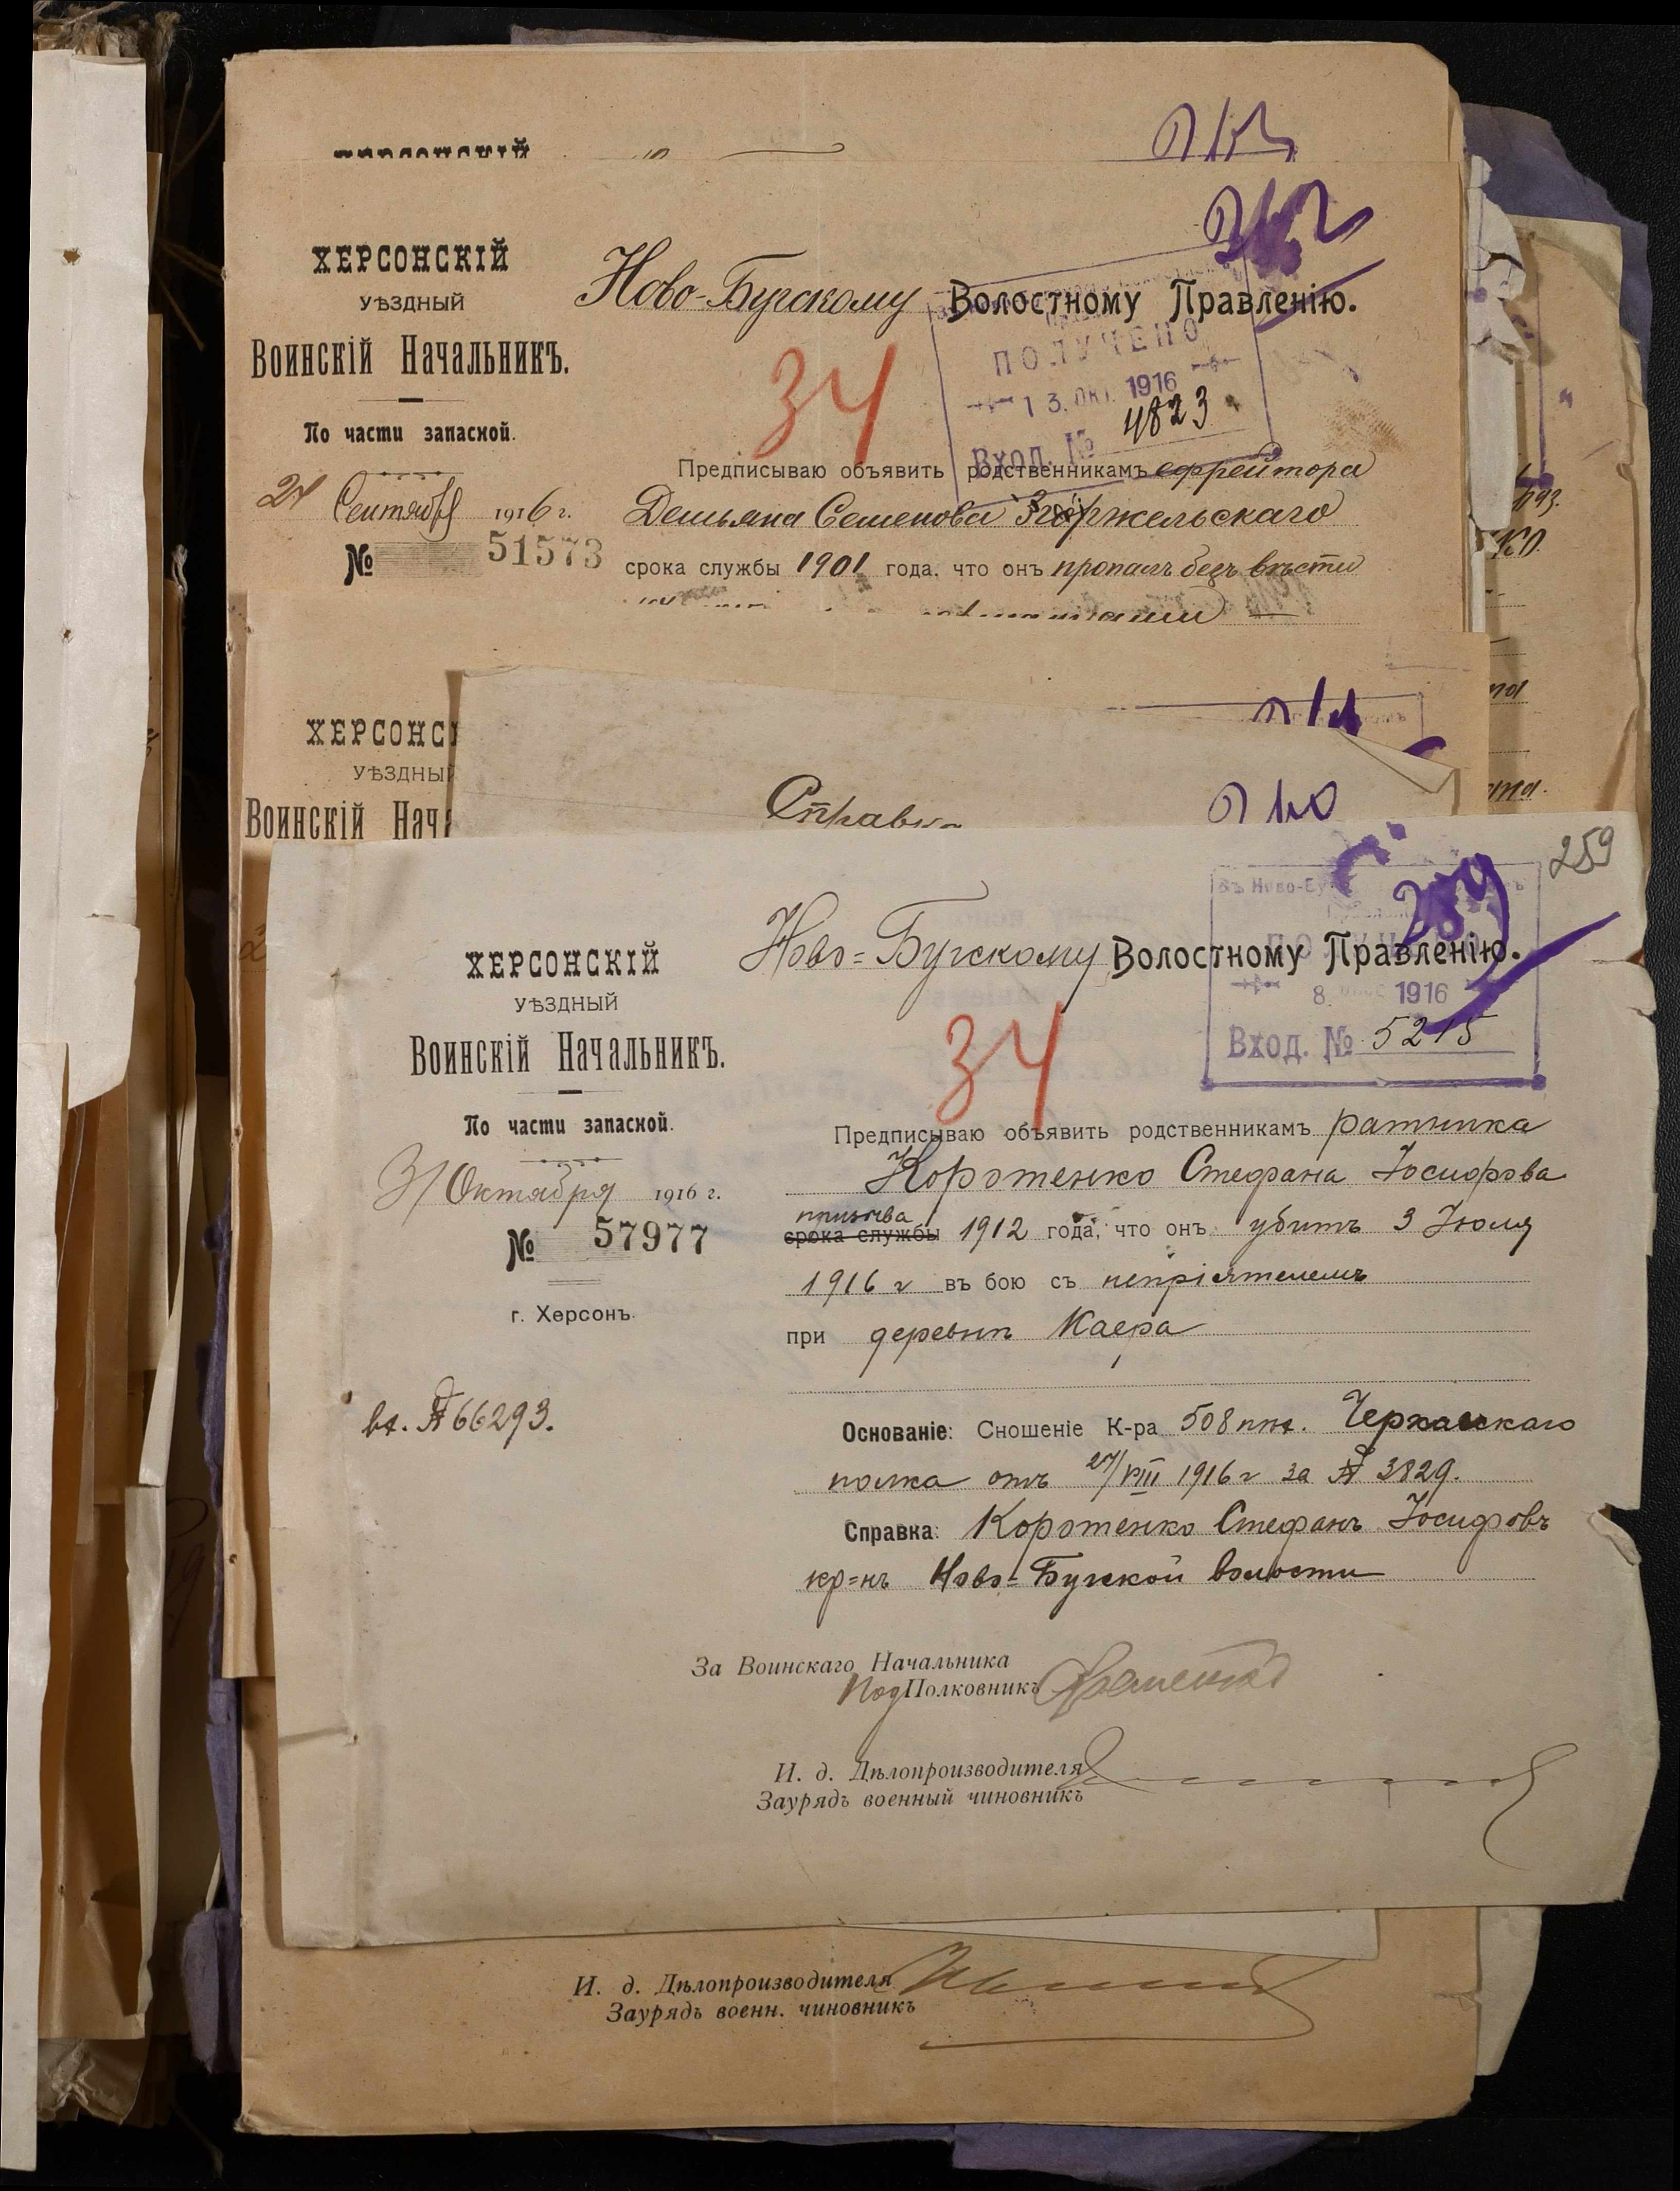 ХЕРСОНСКІЙ
ХЕРСОНСКІЙ
УѢЗДНЫЙ
ВОИНСКІЙ НАЧАЛЬНИКЪ.
По части запасной.
24 Сентября 1916 г.
№ 51573
Ново-Бугскому Волостному Правленію.
34
ПОЛУЧЕНО
13. ОКТ. 1916
Вход. № 4823
Предписываю объявить родственникамъ ефрейтора
Демьяна Семенова Згоржельскаго
срока службы 1901 года, что онъ пропалъ безъ вѣсти
ХЕРСОНС
УѢЗДНЫЙ
ВОИНСКІЙ НАЧА
Справка
259
ХЕРСОНСКІЙ
УѢЗДНЫЙ
ВОИНСКІЙ НАЧАЛЬНИКЪ.
По части запасной.
31 Октября 1916 г.
№ 57977
г. Херсонъ.
вх. № 66293.
Ново=Бугскому Волостному Правленію.
Въ Ново-Бу
259
8. 1916
Вход. № 5215
34
Предписываю объявить родственникамъ ратника
Коротенко Стефана Іосифова
призыва
срока службы 1912 года, что онъ убитъ 3 Іюля
1916 г въ бою съ непріятелемъ
при деревнѣ
Основаніе: Сношеніе К-ра 508 пѣх. Черкасскаго
полка отъ 27/VIII 1916 г за № 3829.
Справка: Коротенко Стефанъ Іосифовъ
кр=нъ Ново=Бугской волости
За Воинскаго Начальника
ПодПолковникъ
И. д. Дѣлопроизводителя
Заурядъ военный чиновникъ
И. д. Дѣлопроизводителя
Заурядъ военн. чиновникъ